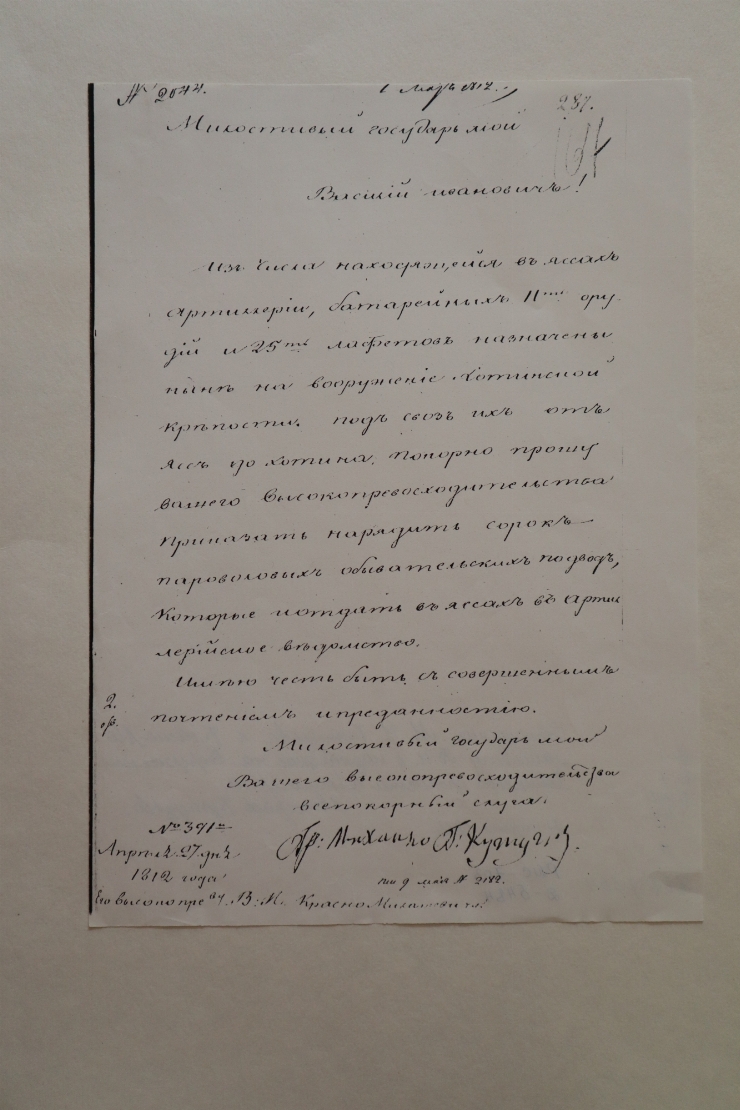 № 2044. 1 Мая 1812.
287.
Милостивый государь мой
Василий ивановичъ!
Изъ числа находящейся въ яссахъ
Артиллеріи, батарейныхъ 11ти ору-
дій и 25ть лафетовъ назначены
нынѣ на вооруженіе Хотинской
крѣпости. подъ свозъ ихъ отъ
Яссъ до хотина, покорно прошу
вашего Высокопревосходительства
приказать нарядить сорокъ
пароволовыхъ обывательскихъ подводъ,
которые и отдать въ яссахъ въ арти
лерійское вѣдомство.
Имѣю честь быть съ совершеннымъ
почтеніемъ и преданностію.
2.
Милостивый государь мой
Вашего высокопревосходительства
всепокорный слуга.
№ 391
Гр: Михайло Г: Кутузов.
Апрѣля 27 дня
1812 года
9 мая № 2182.
Его высокопре ву. В: И. Красно Милашевичу!